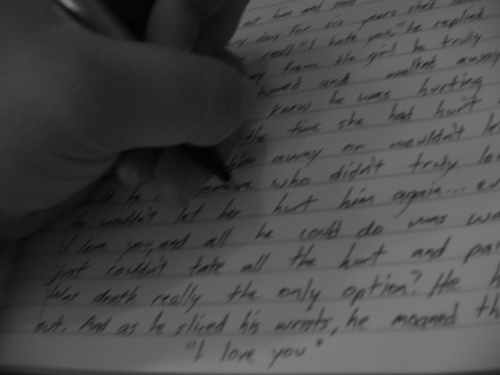 him and
day for six years she'd
really "I hate you," he replied
from the girl he truly
turned and walked away
knew he was hurting
the time she had hurt
him away or wouldn't let
who didn't truly lov
He wouldn't let her hurt him again... ev
I love you, and all he could do was
just couldn't take all the hurt and pai
Was death really the only option? He
out. And as he sliced his wrists, he moaned th
"I love you"